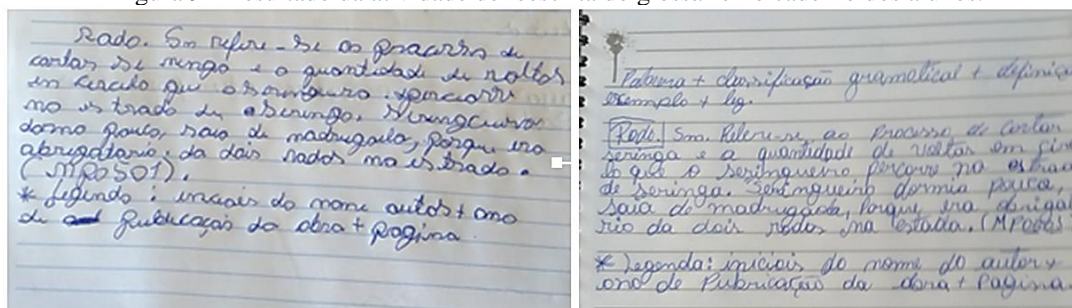 Rado. Sm refere-se os processo de
cortar se ringa e a quantidade de voltas
em circulo que o seringuero percorre
na estrada de seringa. Seringueiro
dormia pouco, saia de madrugada, porque era
obrigatorio, da dois rodos na estrada.
(MP0501).
* Legenda: iniciais do nome autor + ano
de Publicação da obra + pagina.
Palavra + classificação gramatical + definiça
exemplo + leg.
Rodo. Sm. Refere-se, ao Processo de Cortar
seringa e a quantidade de voltas em cir
lo que o seringueiro percorre na estrad
de seringa. Seringueiro dormia pouco,
saia de madrugada, Porque era obrigat
rio da dois rodos na estada. (MP0
* Legenda: iniciais do nome do autor +
ano de Publicação da obra + Pagina.